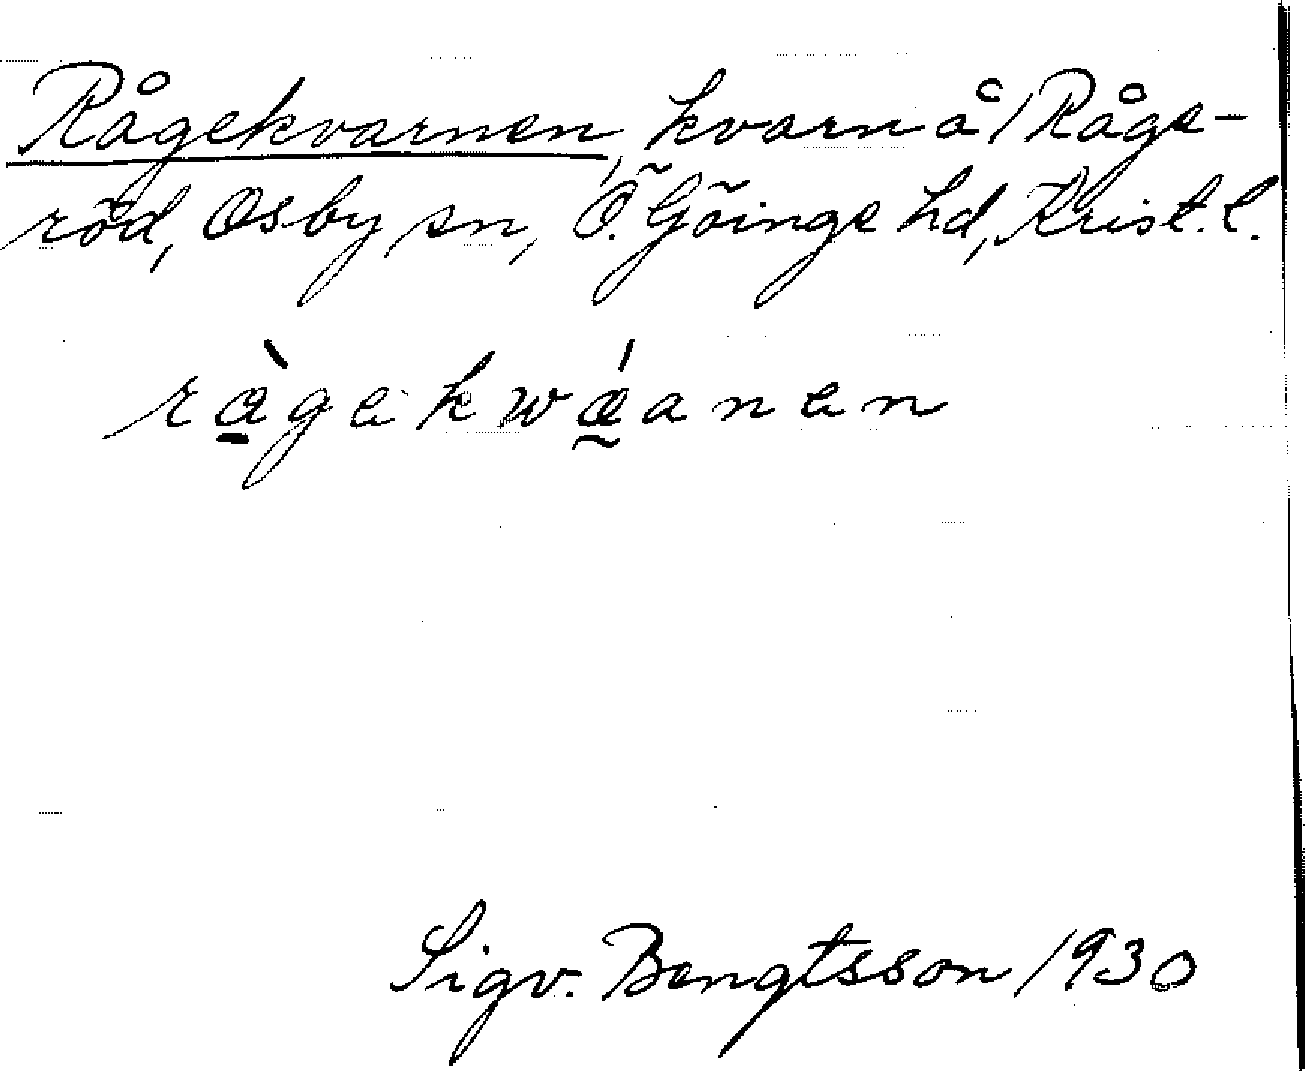 Rågekvarnen, kvarn å Råge-
röd, Osby sn, Ö. Göinge hd, Krist. l.
rà̱gekwǽ̰anen
Sigv. Bengtsson 1930